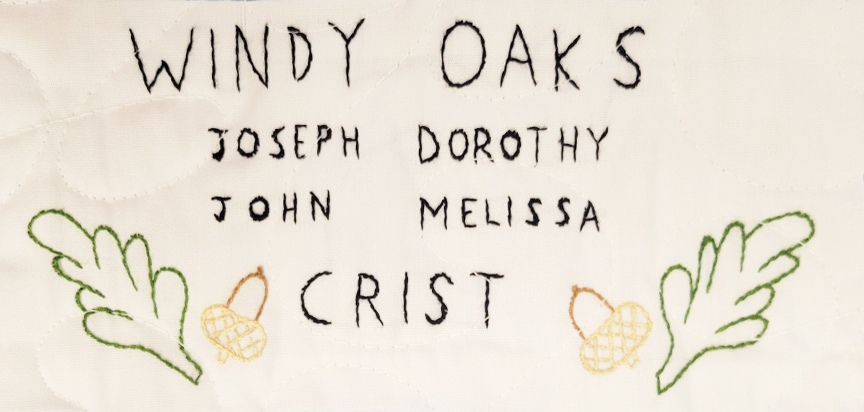 WINDY OAKS
JOSEPH DOROTHY
JOHN MELISSA
CRIST